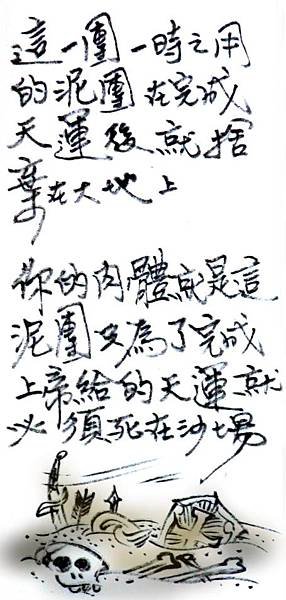 這一團一時之用
的泥團在完成
天運後就捨
棄在大地上
你的肉體就是這
泥團只為了完成
上帝給的天運就
必須死在沙場